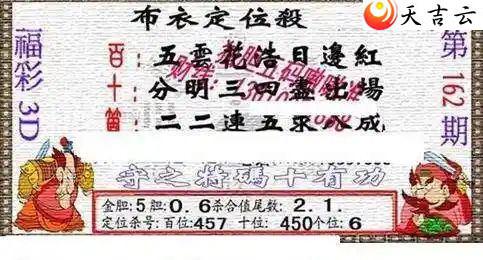 天吉云
布衣定位殺
福彩3D
第162期
百: 五雲花浩日邊紅
十: 分明三四盡出場
二二連五來八成
守之将碼十有功
金胆:5胆:0.6杀合值尾数:2.1.
定位杀号:百位:457 十位:450个位:6